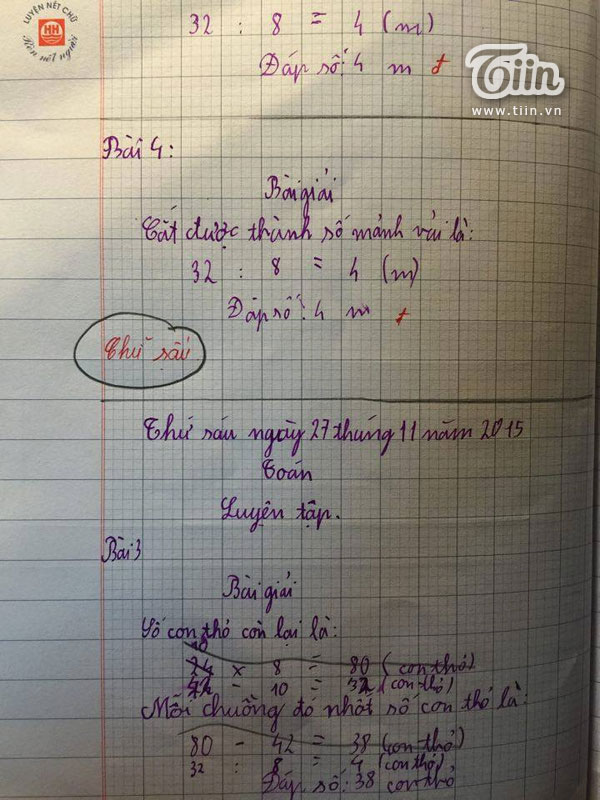 LUYỆN NÉT CHỮ
HH
Rèn nết người
32 : 8 = 4 (m)
Đáp số: 4 m đ
Tiin
www.tiin.vn
Bài 4:
Bài giải
Cắt được thành số mảnh vải là:
32 : 8 = 4 (m)
Đáp số: 4 m đ
Thứ sáu
Thứ sáu ngày 27 tháng 11 năm 2015
Toán
Luyện tập.
Bài 3
Bài giải
Số con thỏ còn lại là:
10
x 8 = 80 (con thỏ)
42 - 10 = 32 (con thỏ)
Mỗi chuồng đó nhốt số con thỏ là:
80 - 42 = 38 (con thỏ)
32 : 8 = 4 (con thỏ)
Đáp số: 38 con thỏ